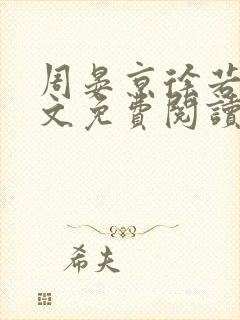 周晏京徐若
文免費閱讀
希夫